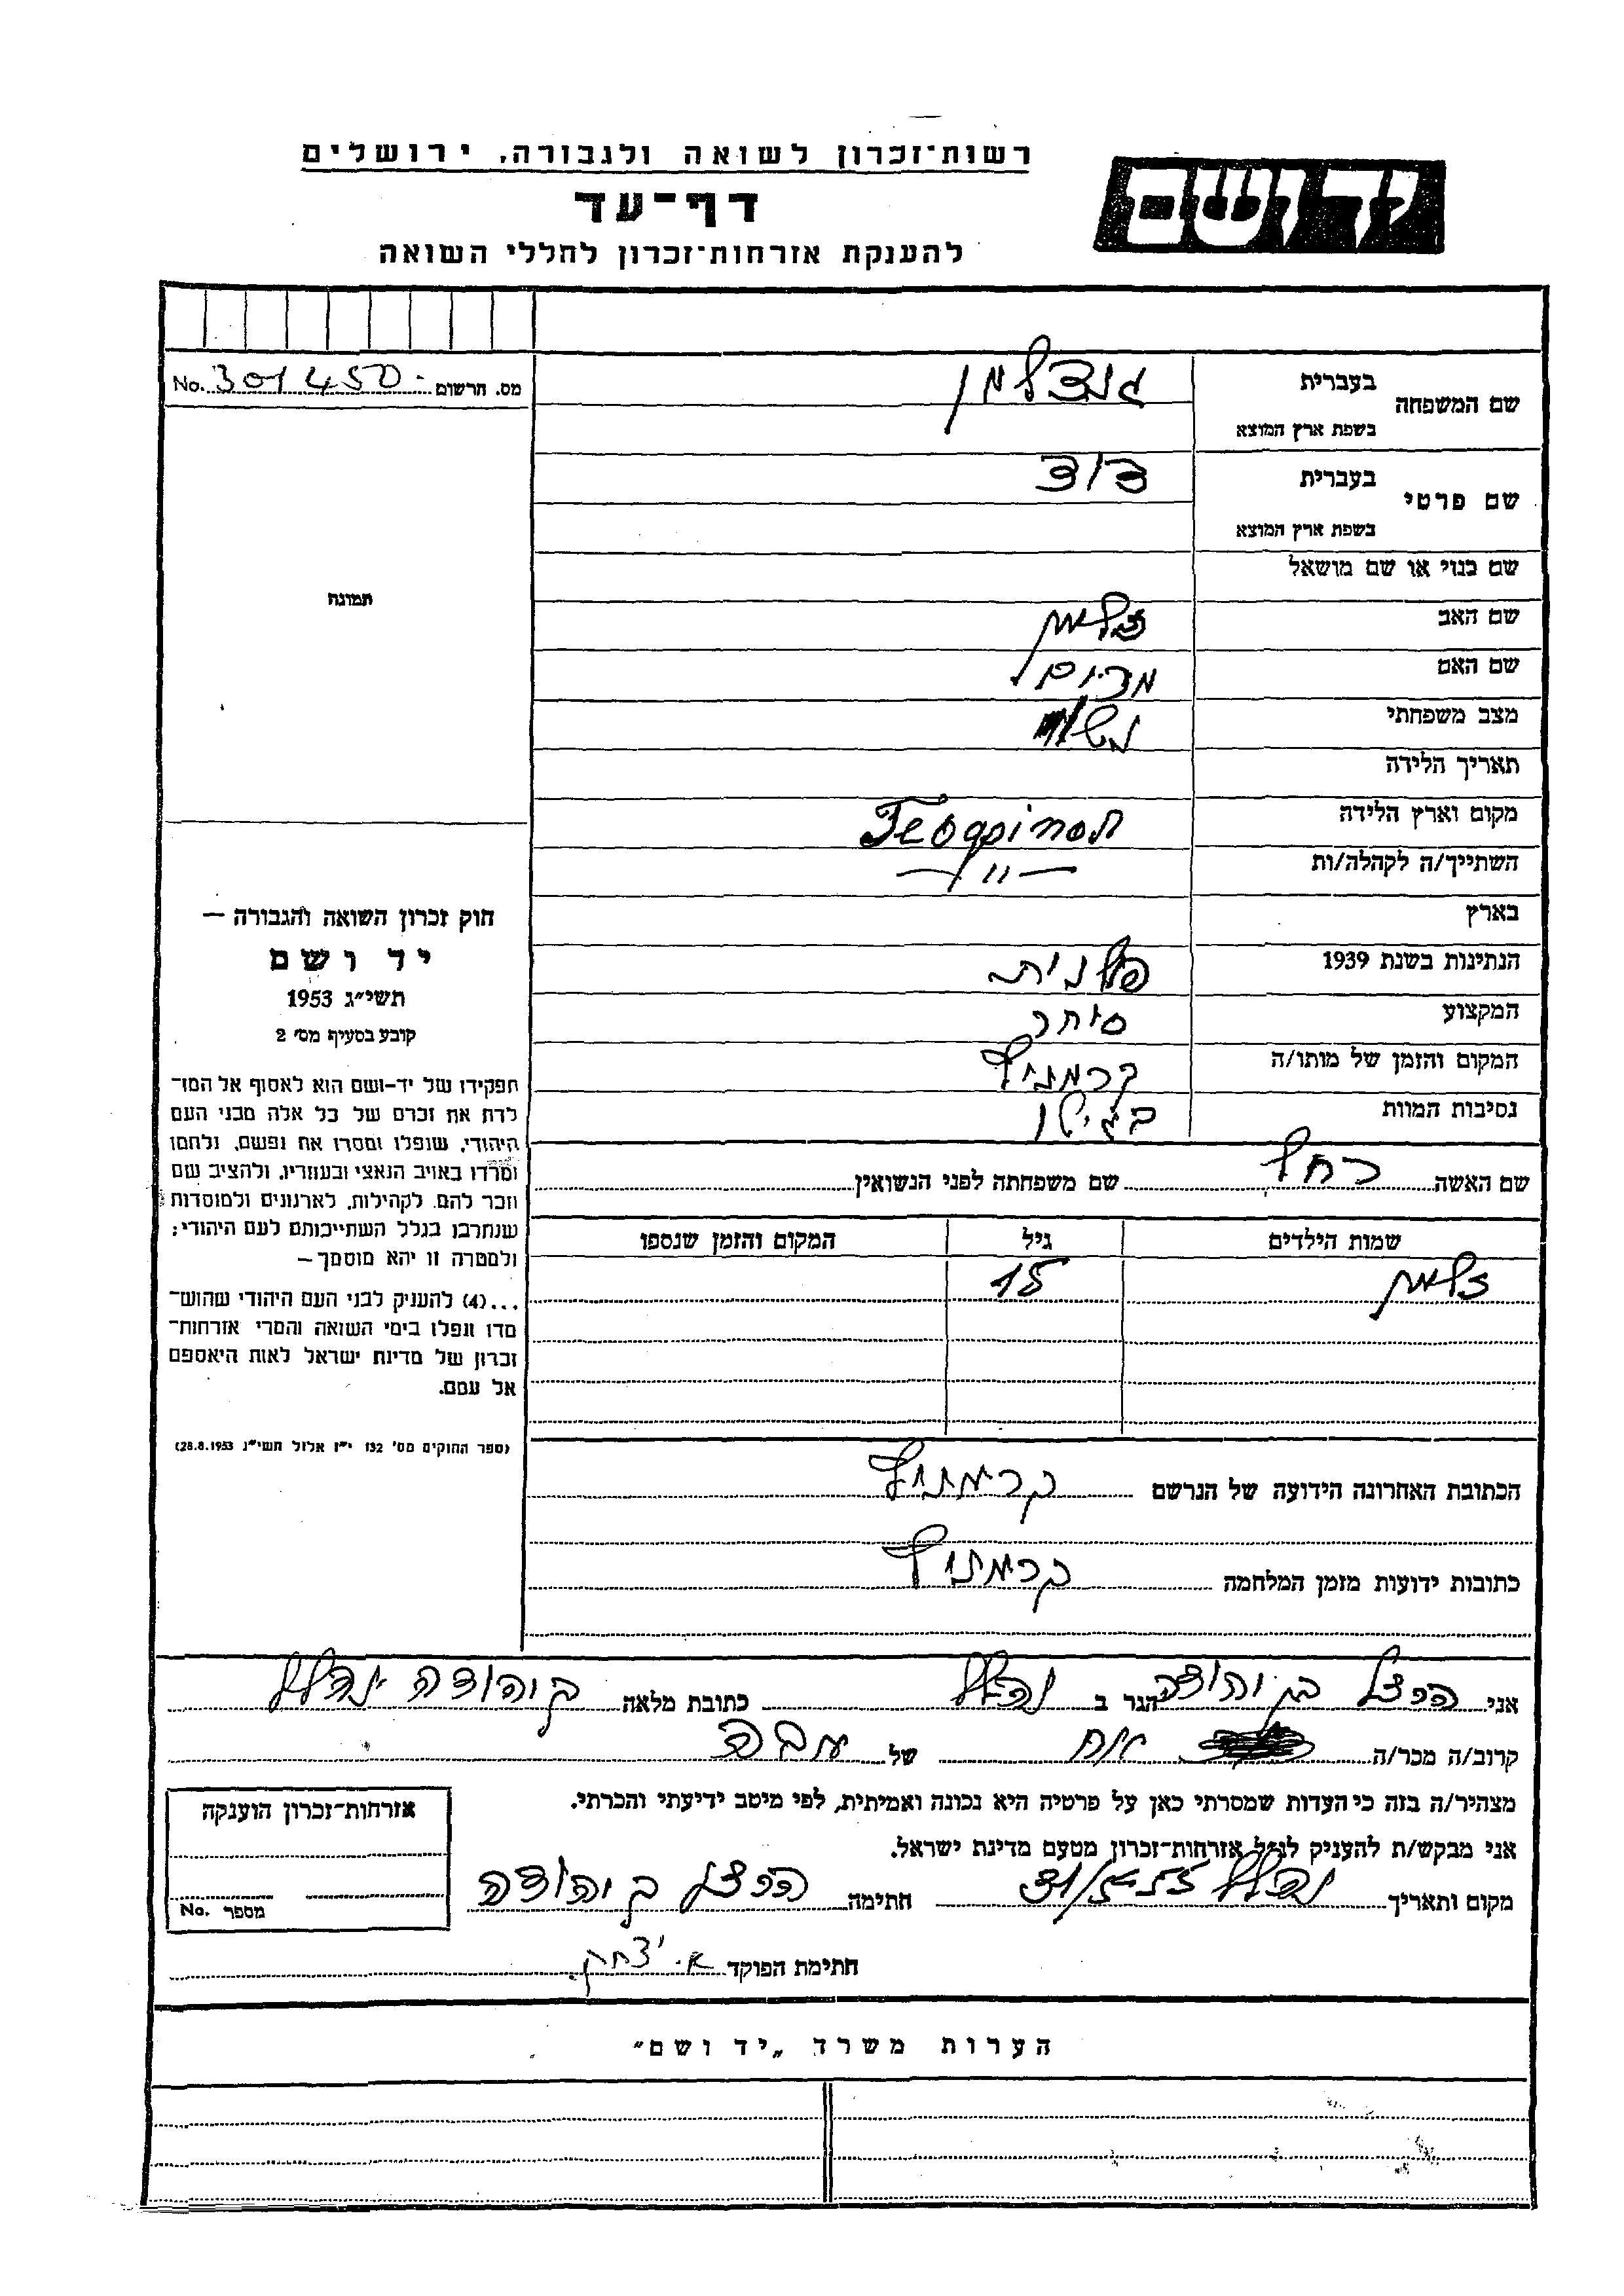 רשות־זכרון לשואה ולגבורה, ירושלים
דף־עד
להענקת אזרחות־זכרון לחללי השואה
יד ושם
מס. הרשום No. 301450
שם המשפחה
בעברית גנדלמן
בשפת ארץ המוצא
שם פרטי
בעברית דוד
בשפת ארץ המוצא
שם כנוי או שם מושאל
תמונה
שם האב זלמן
שם האם מרים
מצב משפחתי נשוי
תאריך הלידה
מקום וארץ הלידה
השתייך/ה לקהלה/ות —״—
בארץ
הנתינות בשנת 1939 פולנית
המקצוע סוחר
המקום והזמן של מותו/ה
נסיבות המוות
שם האשה רחל שם משפחתה לפני הנשואין
שמות הילדים גיל המקום והזמן שנספו
זלמן 15
הכתובת האחרונה הידועה של הנרשם
כתובות ידועות מזמן המלחמה
חוק זכרון השואה והגבורה —
יד ושם
תשי״ג 1953
קובע בסעיף מס׳ 2
תפקידו של יד-ושם הוא לאסוף אל המו־
לדת את זכרם של כל אלה מבני העם
היהודי, שנפלו ומסרו את נפשם, נלחמו
ומרדו באויב הנאצי ובעוזריו, ולהציב שם
וזכר להם, לקהילות, לארגונים ולמוסדות
שנחרבו בגלל השתייכותם לעם היהודי;
ולמטרה זו יהא מוסמך —
...(4) להעניק לבני העם היהודי שהוש־
מדו ונפלו בימי השואה והמרי אזרחות־
זכרון של מדינת ישראל לאות היאספם
אל עמם.
(ספר החוקים מס׳ 132 י״ז אלול תשי״ג 28.8.1953)
אני הרצל בן יהודה הגר ב נהלל כתובת מלאה בן יהודה נהלל
קרוב/ה מכר/ה של
מצהיר/ה בזה כי העדות שמסרתי כאן על פרטיה היא נכונה ואמיתית, לפי מיטב ידיעתי והכרתי.
אני מבקש/ת להעניק לנ״ל אזרחות־זכרון מטעם מדינת ישראל.
מקום ותאריך נהלל חתימה הרצל בן יהודה
אזרחות־זכרון הוענקה
מספר No.
חתימת הפוקד א. יצחק
הערות משרד „יד ושם״